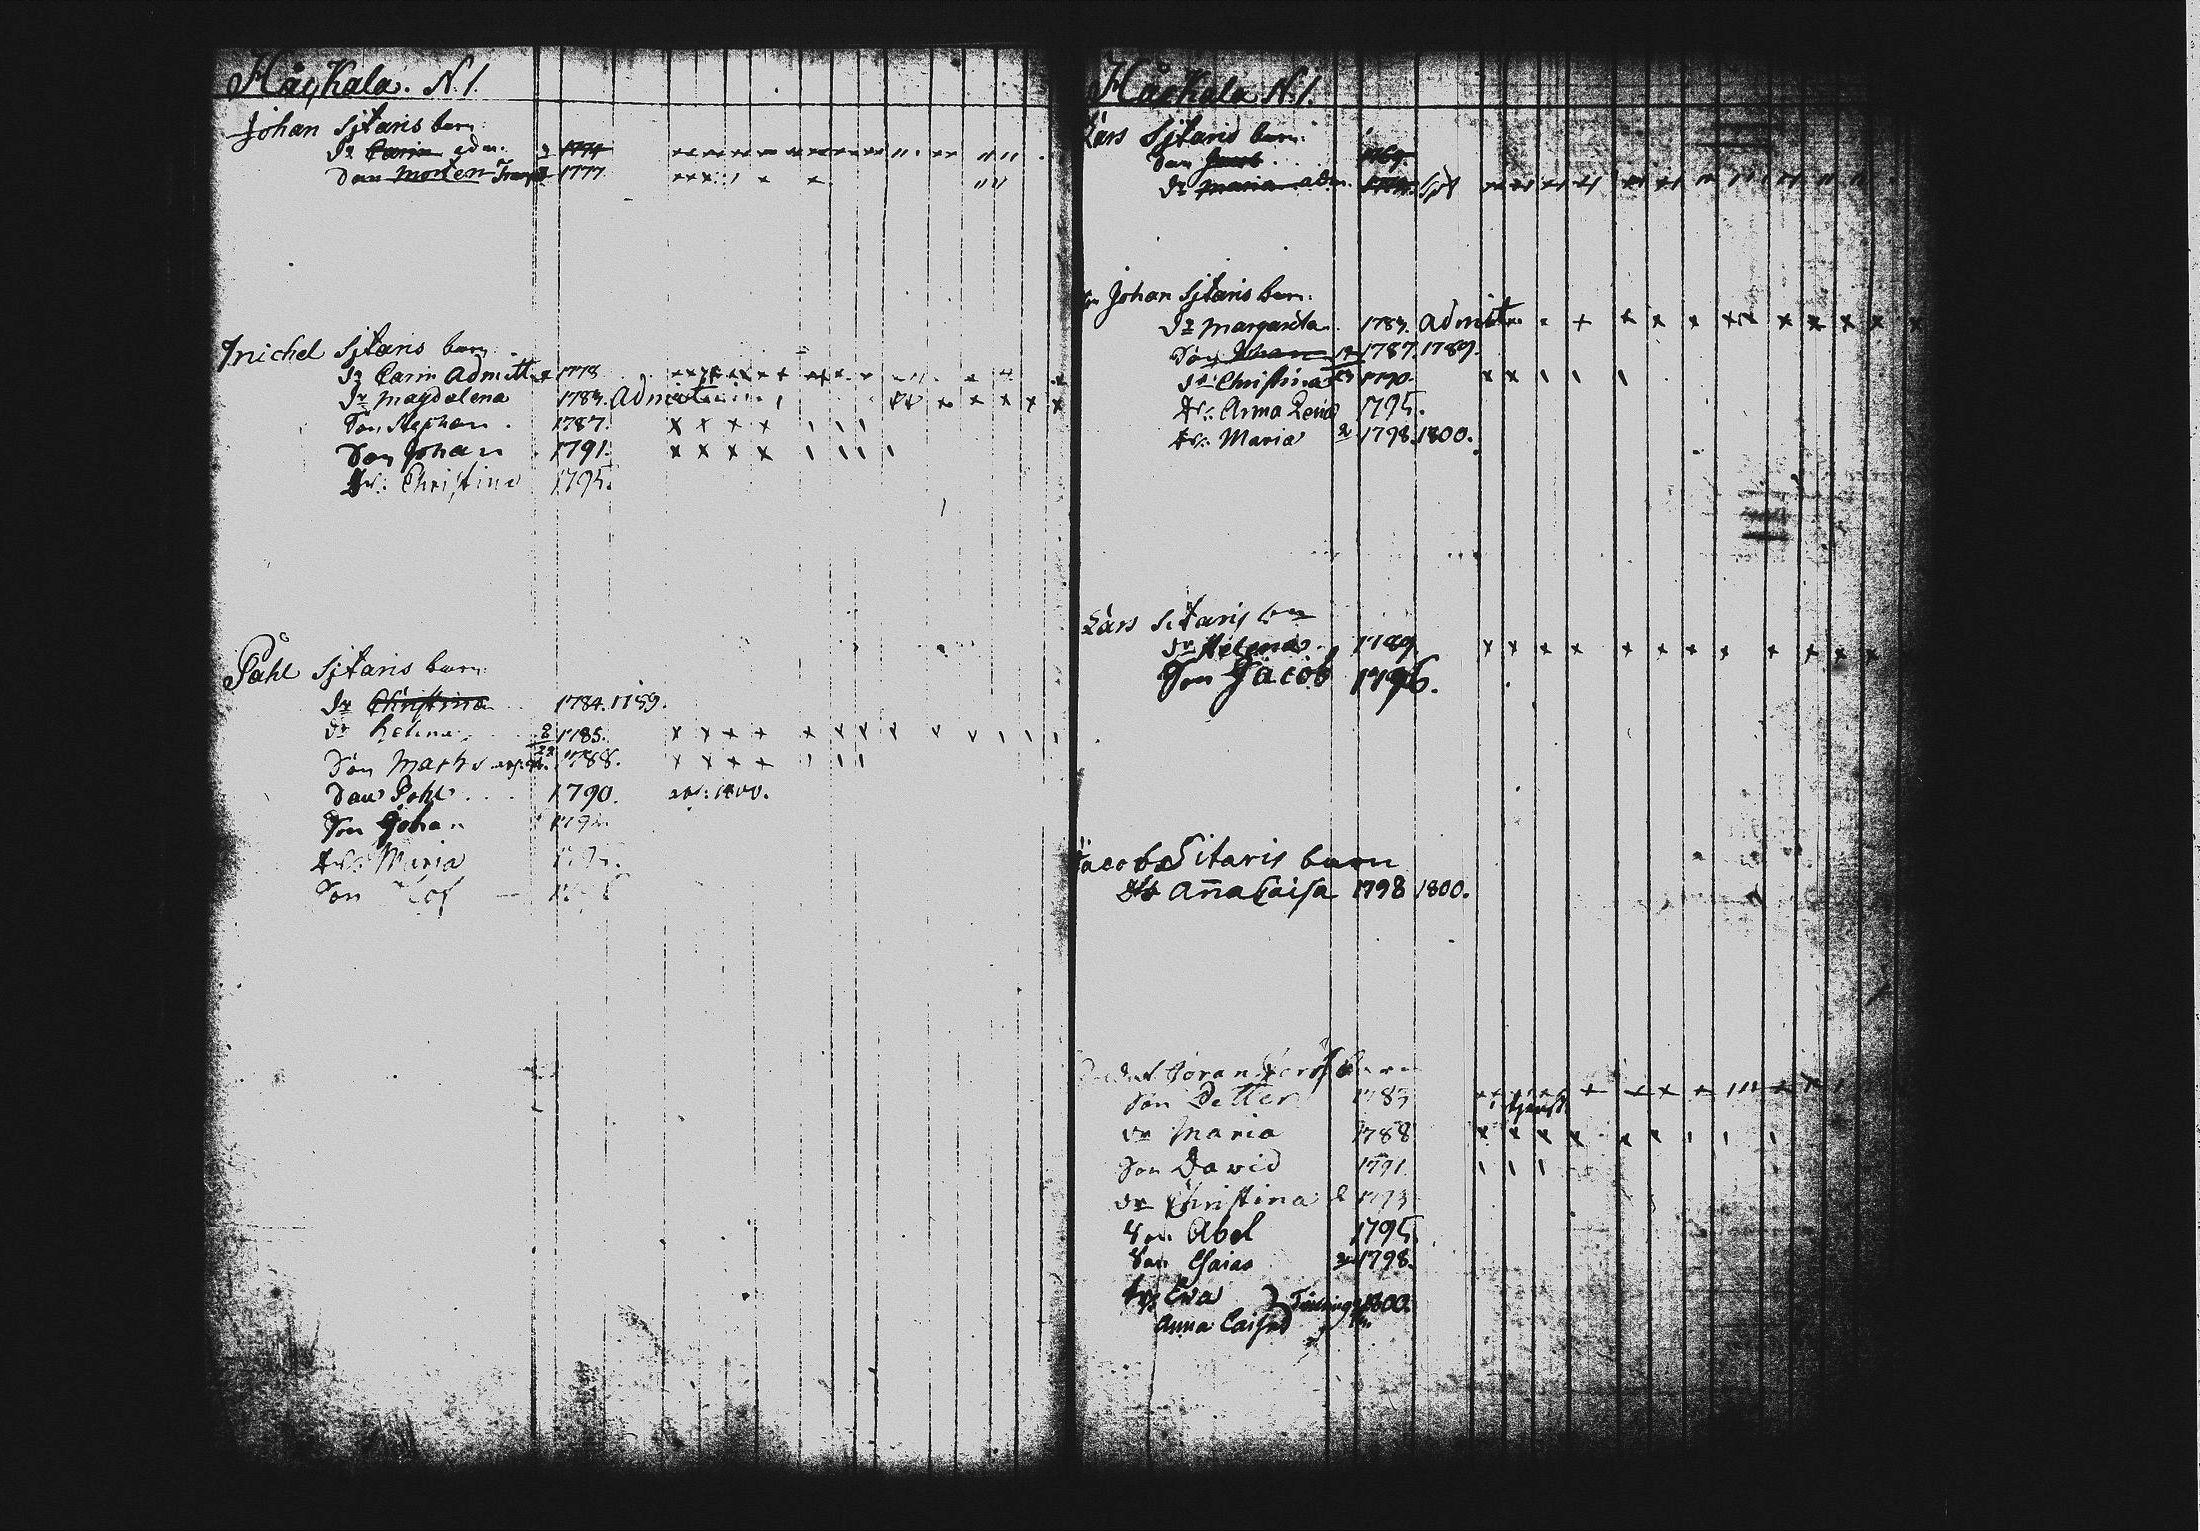 Håckala. N.1.
Johan Sitaris barn
Dr Carin adm. 1774
Son Morten 1777
Michel Sitaris barn
Dr Carin Admitt 1778
Dr Magdalena 1783. Admitt
Son Stephan. 1787.
Son Johan 1791.
Dr: Christina 1795.
Påhl Sitaris barn
Dr Christina 1784. 1789.
Dr Helena 8 1785.
Son Maths 1788.
Son Pohl 1790. 1800.
Son Johan
Dr: Maria
Son
Håckala N.1.
Lars Sitaris barn
Son Jacob 1769
Dr Maria adm.
Johan Sitaris barn.
Dr Margareta. 1783. Admitt
Son Johan 1787. 1789.
Dr Christina 1790.
Dr: Anna Lena 1795.
Dr: Maria 2 1798. 1800.
Lars Sitaris barn
Dr Helena. 1789
Son Jacob 1796.
Jacob Sitaris barn
Dr Aña Caisa 1798 1800.
Göran barn
Son Petter 1783
Dr Maria 1788
Son David 1791
Dr Christina 1793
Son Abel 1795.
Son Esaias 1798.
Eva Tvillingar 1800.
Anna Caisa